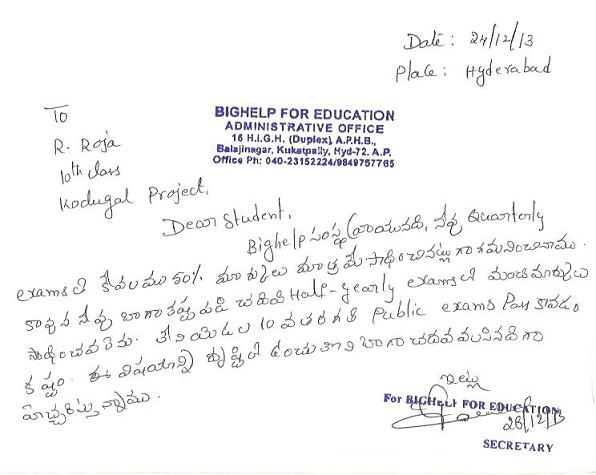 Date: 24/12/13
Place: Hyderabad
To
R. Roja
10th class
Kodugal Project.
BIGHELP FOR EDUCATION
ADMINISTRATIVE OFFICE
16 H.I.G.H. (Duplex), A.P.H.B.,
Balajinagar, Kukatpally, Hyd-72. A.P.
Office Ph: 040-23152224/9849757765
Dear Student,
Bighelp సంస్థ వ్రాయునది, నీవు Quarterly
exams లో కేవలము 50% మార్కులు మాత్రమే సాధించినట్లుగా గమనించినాము.
కావున నీవు బాగా కష్టపడి చదివి Half-yearly exams లో మంచి మార్కులు
సాధించవలెను. లేనియెడల 10 వ తరగతి Public exams Pass కావడం
కష్టం. ఈ విషయాన్ని దృష్టిలో ఉంచుకొని బాగా చదవవలసినదిగా
హెచ్చరిస్తున్నాము.
ఇట్లు
For BIGHELP FOR EDUCATION
26/12/13
SECRETARY